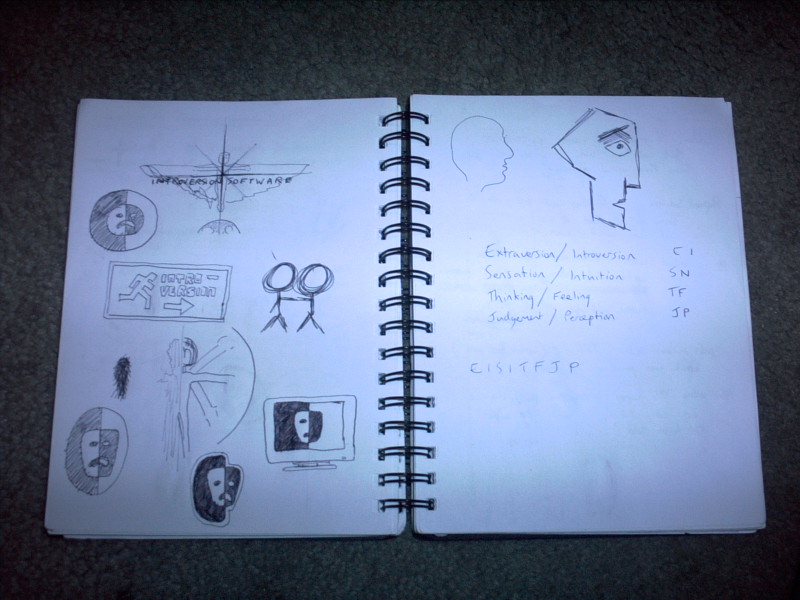 INTROVERSION SOFTWARE
INTRO-
VERSION
Extraversion / Introversion E I
Sensation / Intuition SN
Thinking / Feeling TF
Judgement / Perception JP
E I S I T F J P